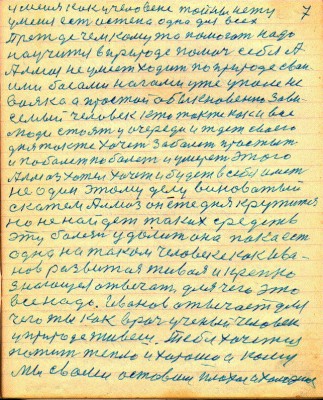 7
у меня как у человека тайны нету
у меня есть истина одна для всех
Прежде чем кому то помогать надо
научится в природе помоч себе А
Алмаз не умеет ходить по природе свои
ми босами ногами уже упал не
вояка а простой обыкновенно зави
симый человек кто также как и все
люди стоят у очереди и ждет своего
дня тоже хочет заболеть простыть
и поболеть поболеть и умереть этого
Алмаз хотел хочет и будет в себе иметь
не один этому делу виноватый
скажем Алмаз он сегодня крутится
но не найдет таких средств
эту болезнь удалить она пока есть
одна на таком человеке как Ива
нов развитая живая и крепко
знающая отвечать для чего это
все надо. Иванов отвечает для
чего ты как врач ученый человек
у природе живеш. Тебе хочется
пожить тепло и хорошо а кому
мы своим оставим плохое и холодное